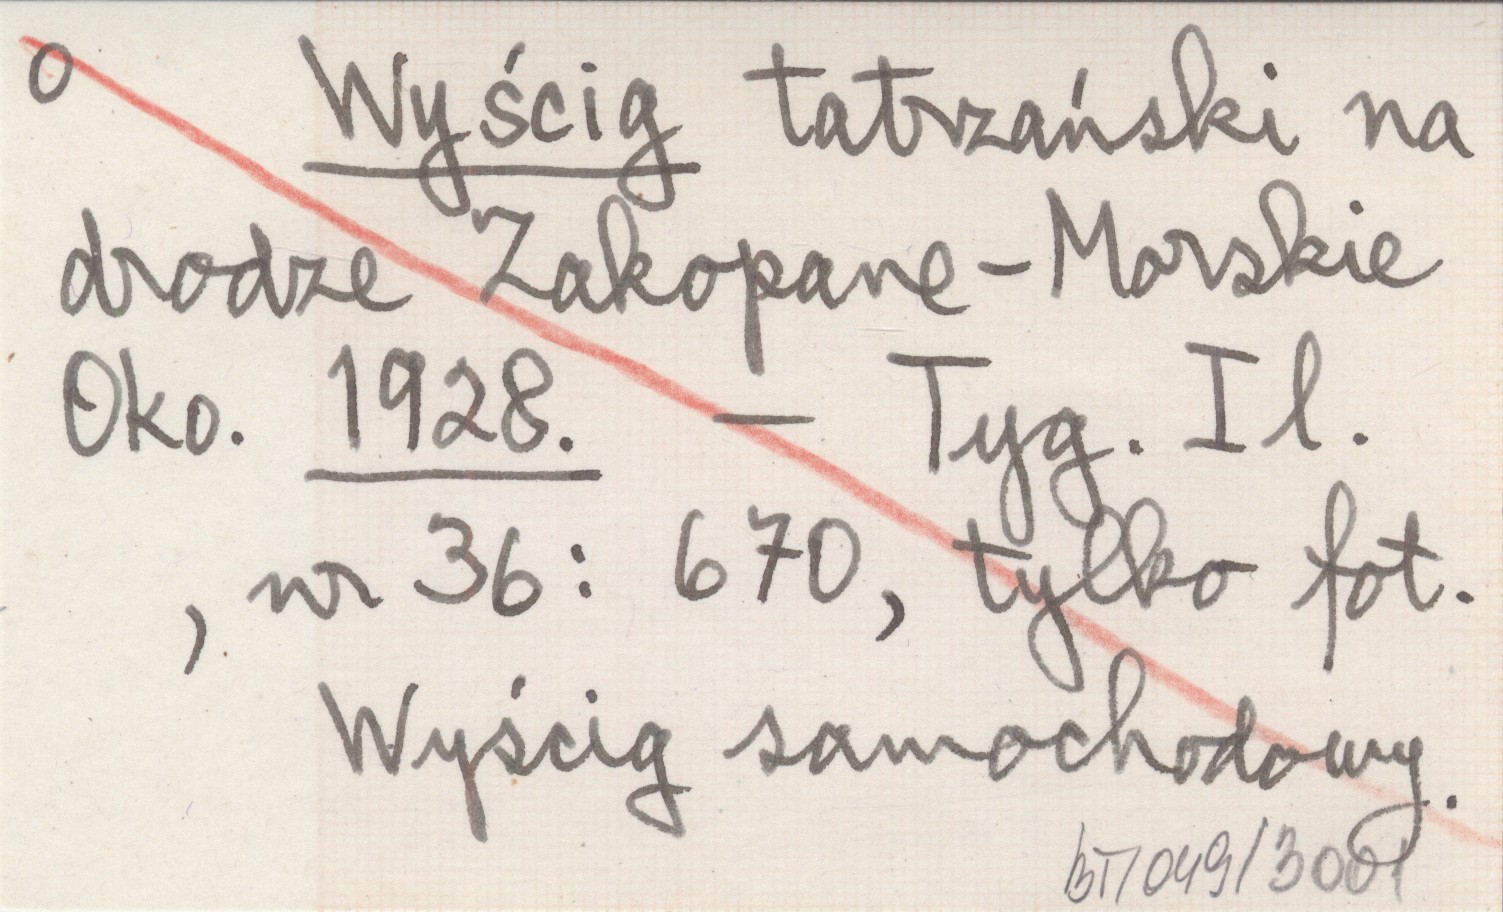 o Wyścig tatrzański na
drodze Zakopane-Morskie
Oko. 1928. — Tyg. Il.
, nr 36: 670, tylko fot.
Wyścig samochodowy.
BT/049/3001